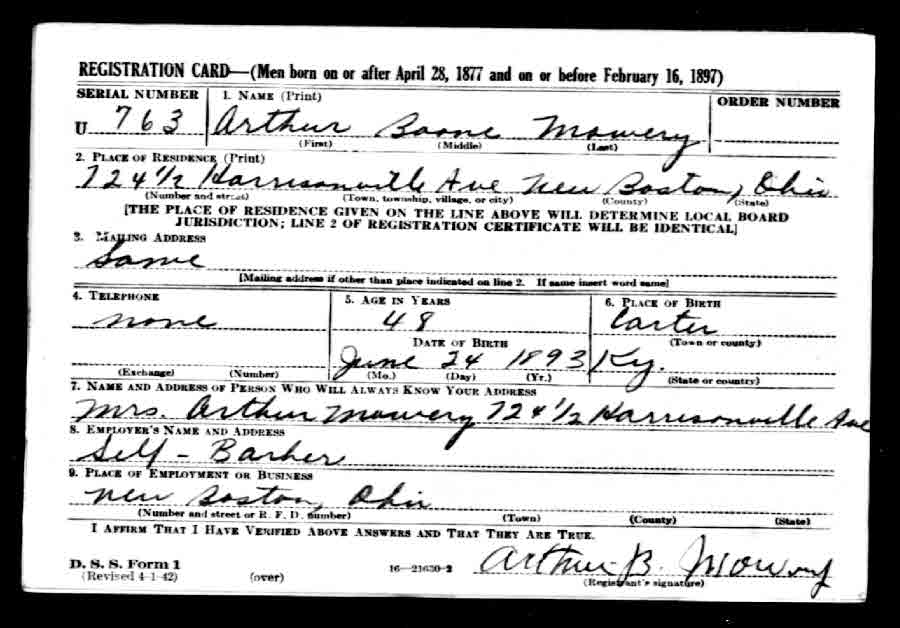 REGISTRATION CARD—(Men born on or after April 28, 1877 and on or before February 16, 1897)
SERIAL NUMBER 1. NAME (Print) ORDER NUMBER
U 763 Arthur Boone Mowery
(First) (Middle) (Last)
2. PLACE OF RESIDENCE (Print)
724 1/2 Harrisonville Ave New Boston, Ohio
(Number and street) (Town, township, village, or city) (County) (State)
[THE PLACE OF RESIDENCE GIVEN ON THE LINE ABOVE WILL DETERMINE LOCAL BOARD
JURISDICTION; LINE 2 OF REGISTRATION CERTIFICATE WILL BE IDENTICAL]
3. MAILING ADDRESS
Same
[Mailing address if other than place indicated on line 2. If same insert word same]
4. TELEPHONE 5. AGE IN YEARS 6. PLACE OF BIRTH
none 48 Carter
DATE OF BIRTH (Town or county)
June 24 1893 Ky.
(Exchange) (Number) (Mo.) (Day) (Yr.) (State or country)
7. NAME AND ADDRESS OF PERSON WHO WILL ALWAYS KNOW YOUR ADDRESS
Mrs. Arthur Mowery 724 1/2 Harrisonville Ave
8. EMPLOYER'S NAME AND ADDRESS
Self - Barber
9. PLACE OF EMPLOYMENT OR BUSINESS
New Boston, Ohio
(Number and street or R. F. D. number) (Town) (County) (State)
I AFFIRM THAT I HAVE VERIFIED ABOVE ANSWERS AND THAT THEY ARE TRUE.
D. S. S. Form 1 16—21630-2 Arthur B. Mowery
(Revised 4-1-42) (over) (Registrant's signature)